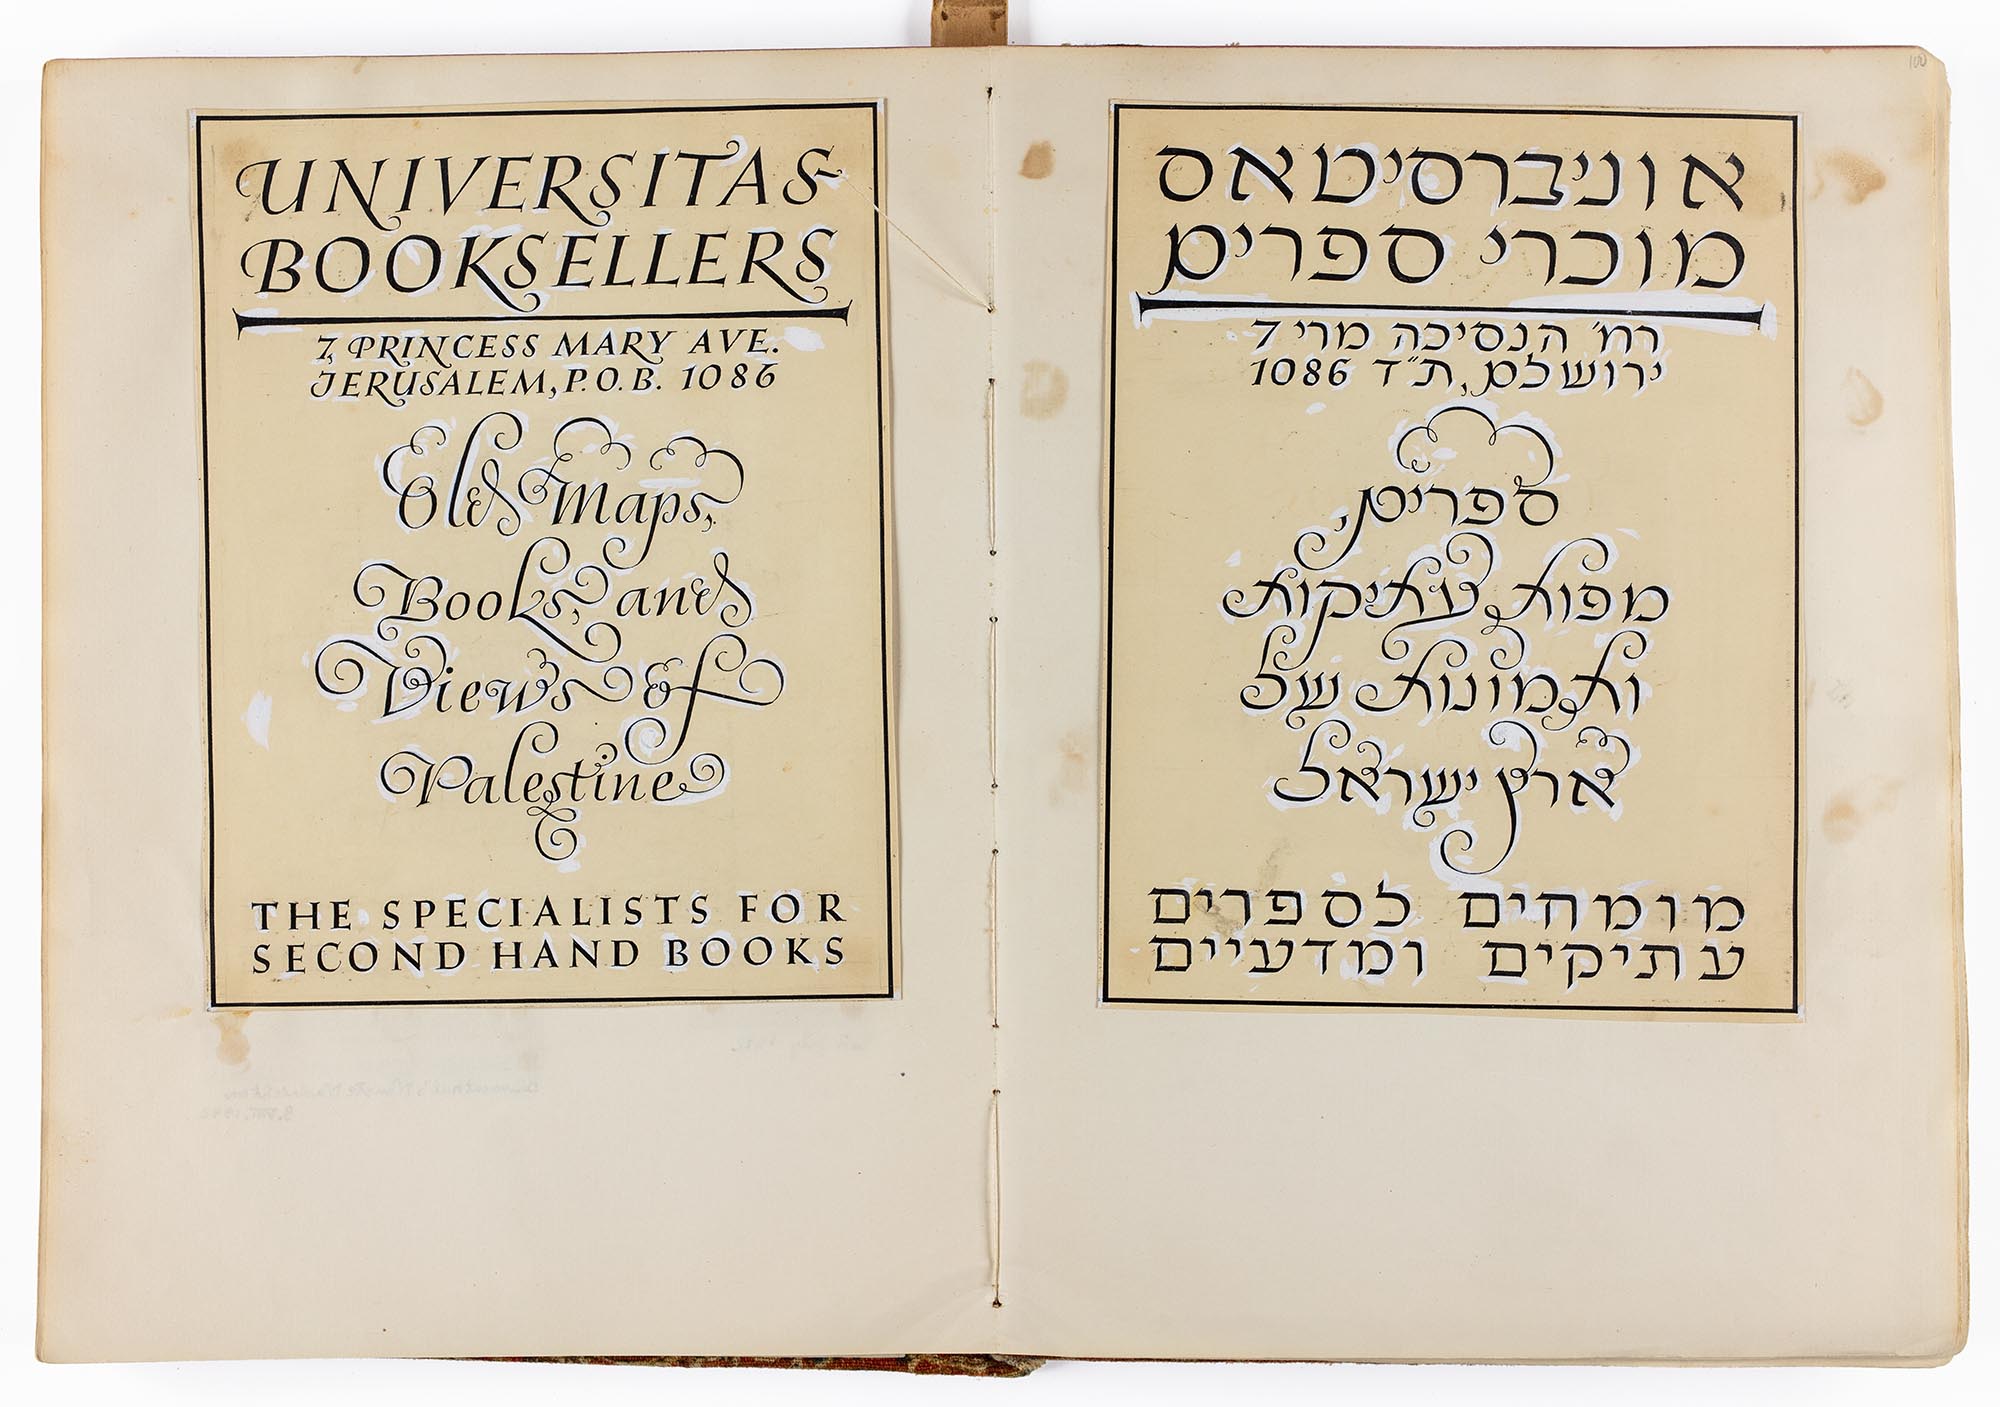 UNIVERSITAS
BOOKSELLERS
7, PRINCESS MARY AVE.
JERUSALEM, P.O.B. 1086
Old Maps,
Books, and
Views of
Palestine
THE SPECIALISTS FOR
SECOND HAND BOOKS
100
אוניברסיטאס
מוכרי ספרים
רח׳ הנסיכה מרי 7
ירושלם, ת״ד 1086
ספרים,
מפות עתיקות
ותמונות של
ארץ ישראל
מומחים לספרים
עתיקים ומדעיים